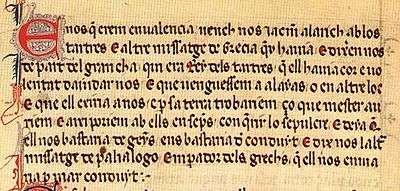 E nos qerem en valencia uench nos jacm alarich ab los
tartres E altre missatge de Grecia qui hauia E dixen nos
de part del gran cha qui era Rey dels tartres q̃ ell hauia cor e uo
lentat daiudar nos E que uenguessem a alayas o en altre loc
E que ell exiria a nos e p sa terra trobariem ço que mester auri
em E axi poriem ab ells ensẽps conq̃rir lo sepulcre E deya q̃
ell nos bastaria de genys ens bastaria de conduyt E dix nos lalt̃
missatge de palialogo Empador dels grechs q̃ ell nos enuia
ria p mar conduyt :-